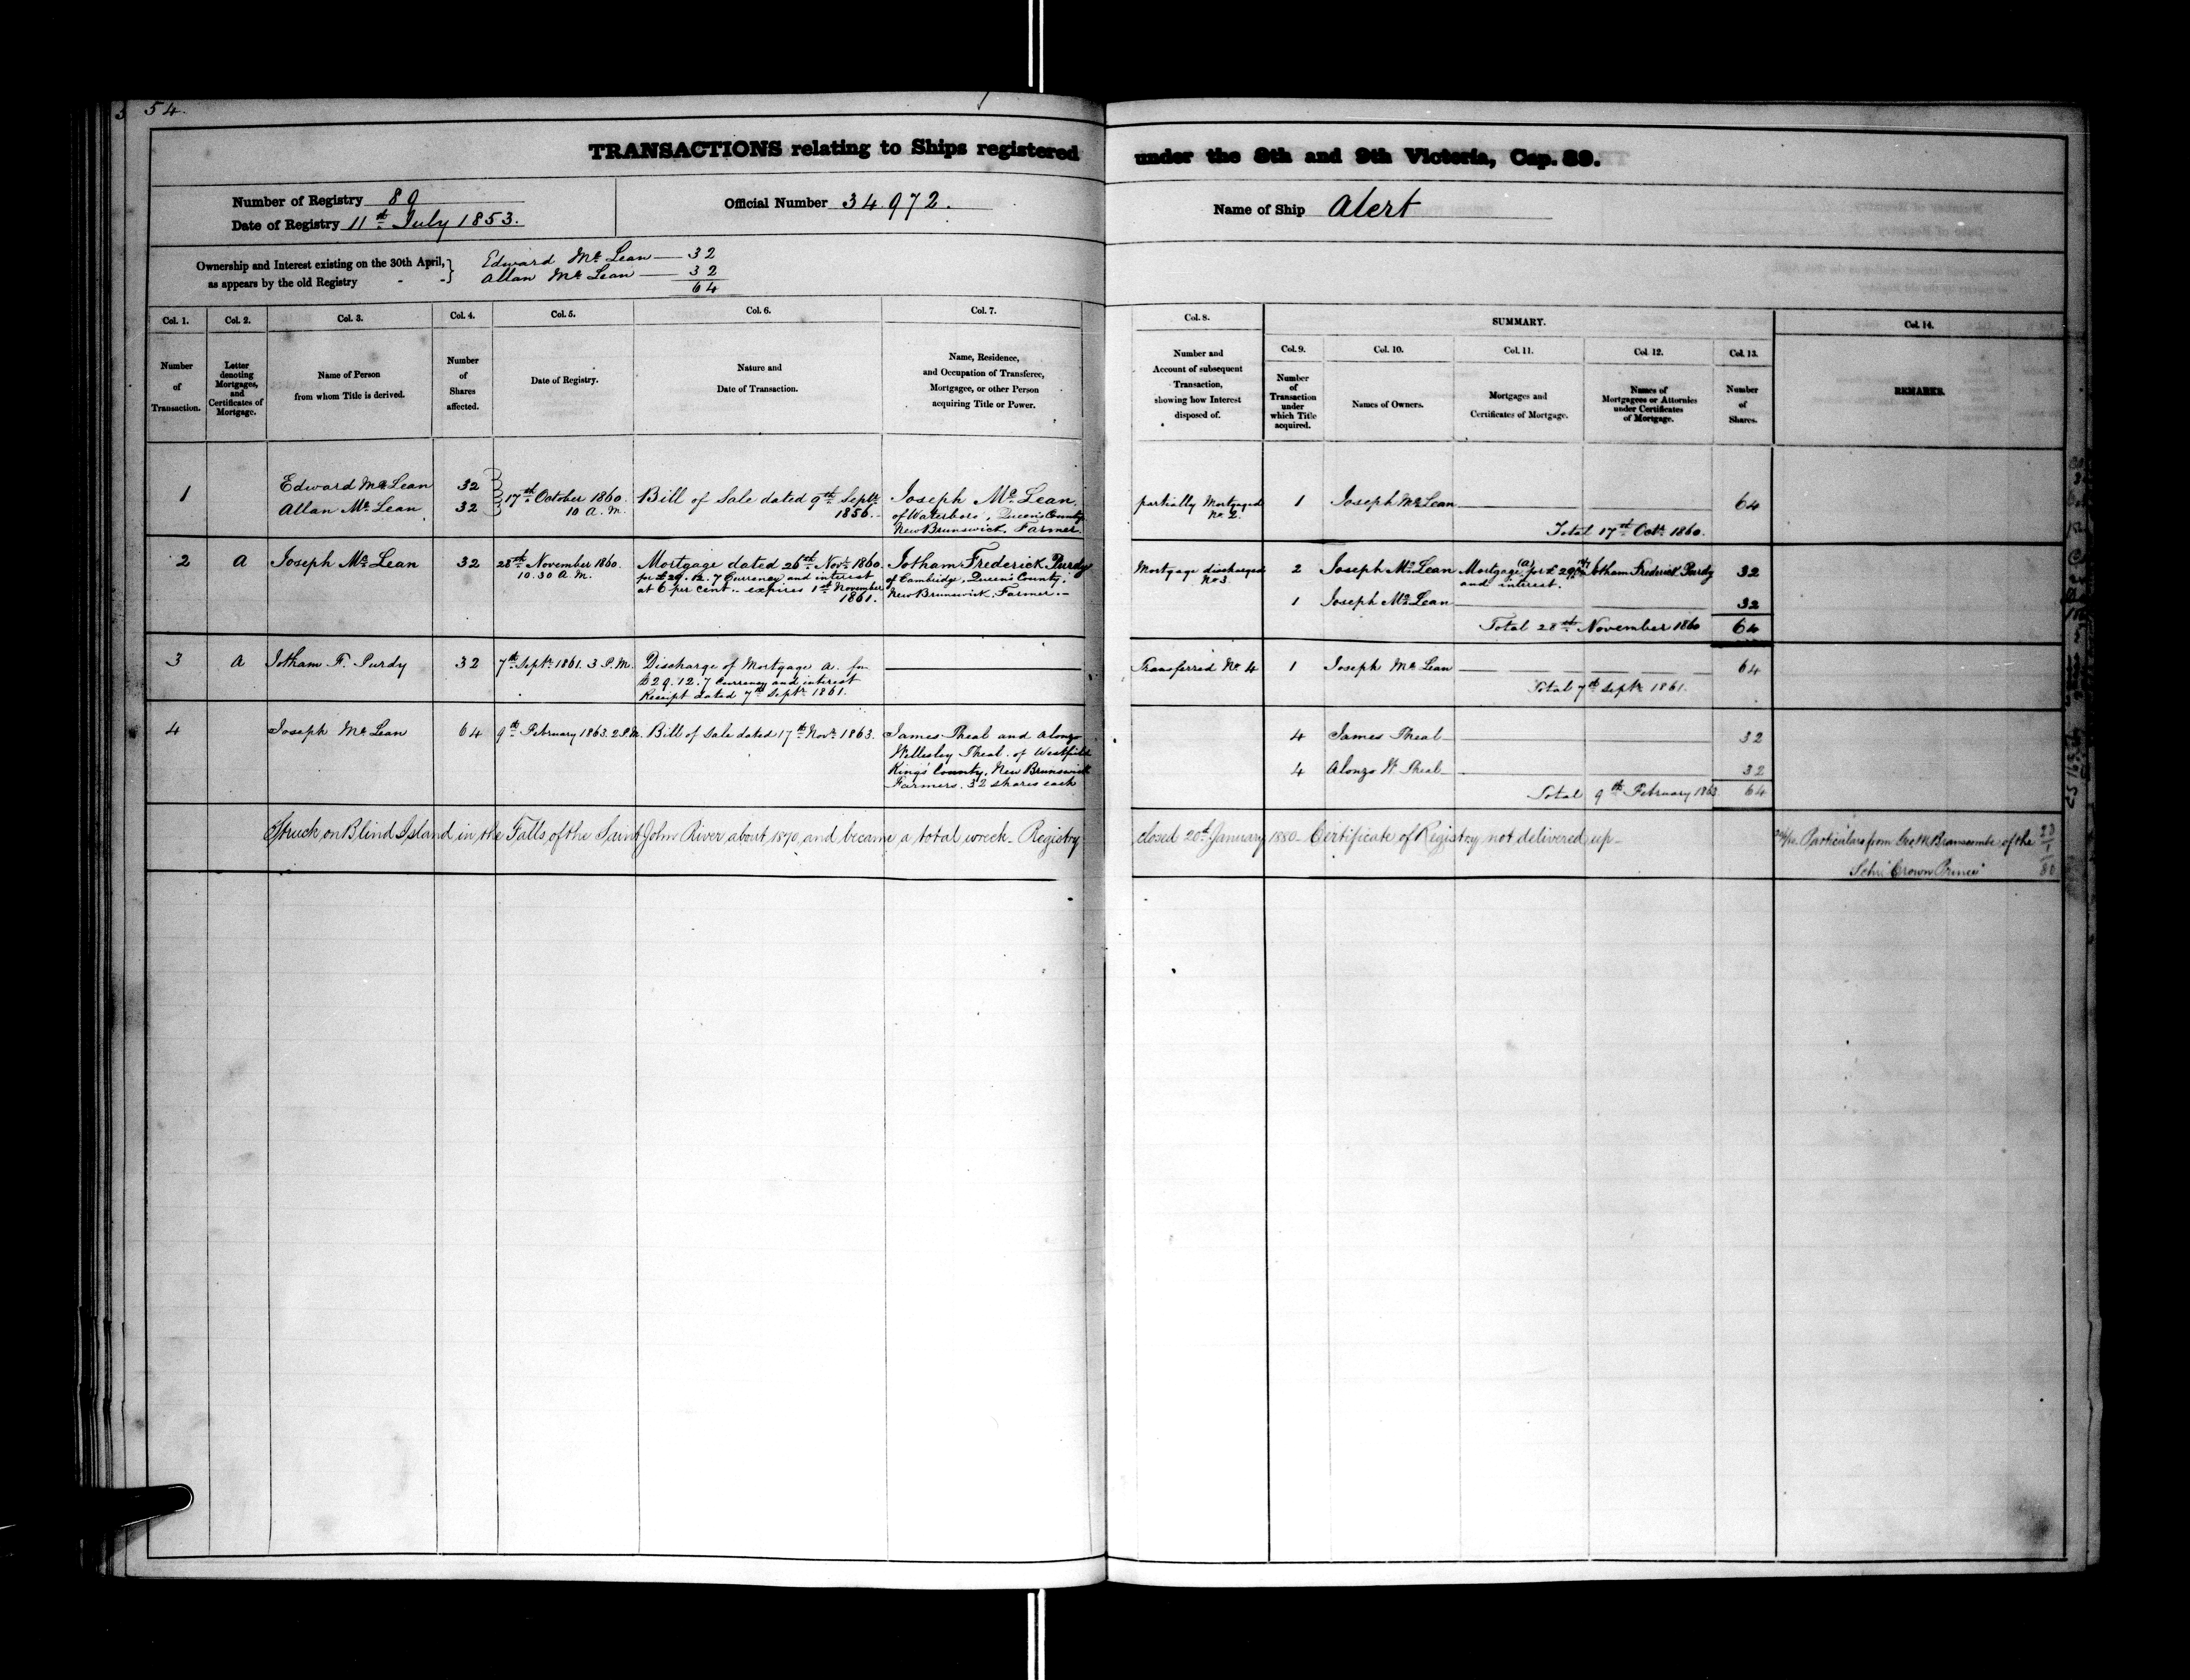 54.
TRANSACTIONS relating to Ships registered under the 8th and 9th Victoria, Cap. 89.
Number of Registry 89
Date of Registry 11th July 1853.
Official Number 34.972.
Name of Ship Alert
Ownership and Interest existing on the 30th April, as appears by the old Registry
Edward McLean — 32
Allan McLean — 32
64
Col. 1.
Number
of
Transaction.
Col. 2.
Letter
denoting
Mortgages,
and
Certificates of
Mortgage.
Col. 3.
Name of Person
from whom Title is derived.
Col. 4.
Number
of
Shares
affected.
Col. 5.
Date of Registry.
Col. 6.
Nature and
Date of Transaction.
Col. 7.
Name, Residence,
and Occupation of Transferee,
Mortgagee, or other Person
acquiring Title or Power.
Col. 8.
Number and
Account of subsequent
Transaction,
showing how Interest
disposed of.
SUMMARY.
Col. 9.
Number
of
Transaction
under
which Title
acquired.
Col. 10.
Names of Owners.
Col. 11.
Mortgages and
Certificates of Mortgage.
Col. 12.
Names of
Mortgagees or Attornies
under Certificates
of Mortgage.
Col. 13.
Number
of
Shares.
Col. 14.
REMARKS.
1
Edward McLean 32
Allan McLean 32
17th October 1860.
10 A.M.
Bill of Sale dated 9th Septr.
1856.
Joseph McLean.
of Waterboro', Queen's County
New Brunswick. Farmer.
partially Mortgaged
No 2.
1 Joseph McLean 64
Total 17th Octr. 1860.
2 A Joseph McLean 32
28th November 1860.
10.30 A.M.
Mortgage dated 26th Novr. 1860
for £29.12.7 Currency and interest
at 6 per cent - expires 1st November
1861.
Jotham Frederick Purdy
of Cambridge, Queen's County,
New Brunswick. Farmer.
Mortgage discharged
No 3.
2 Joseph McLean Mortgage (A) for £29 Jotham Frederick Purdy 32
and interest.
1 Joseph McLean 32
Total 28th November 1860 64
3 A Jotham F. Purdy 32
7th Septr. 1861. 3 P.M.
Discharge of Mortgage A. for
£29.12.7 Currency and interest
Receipt dated 7th Septr. 1861.
Transferred No 4
1 Joseph McLean 64
Total 7th Septr. 1861.
4 Joseph McLean 64
9th February 1863. 2 P.M.
Bill of Sale dated 17th Novr. 1863.
James Theal and Alonzo
Wellesley Theal. of Westfield
King's County, New Brunswick
Farmers. 32 shares each
4 James Theal 32
4 Alonzo W. Theal 32
Total 9th February 1863 64
Struck on Blind Island in the Falls of the Saint John River about 1870, and became a total wreck - Registry closed 20th January 1880 - Certificate of Registry not delivered up -
Particulars from Geo W Branscombe of the
Schr. "Crown Prince"